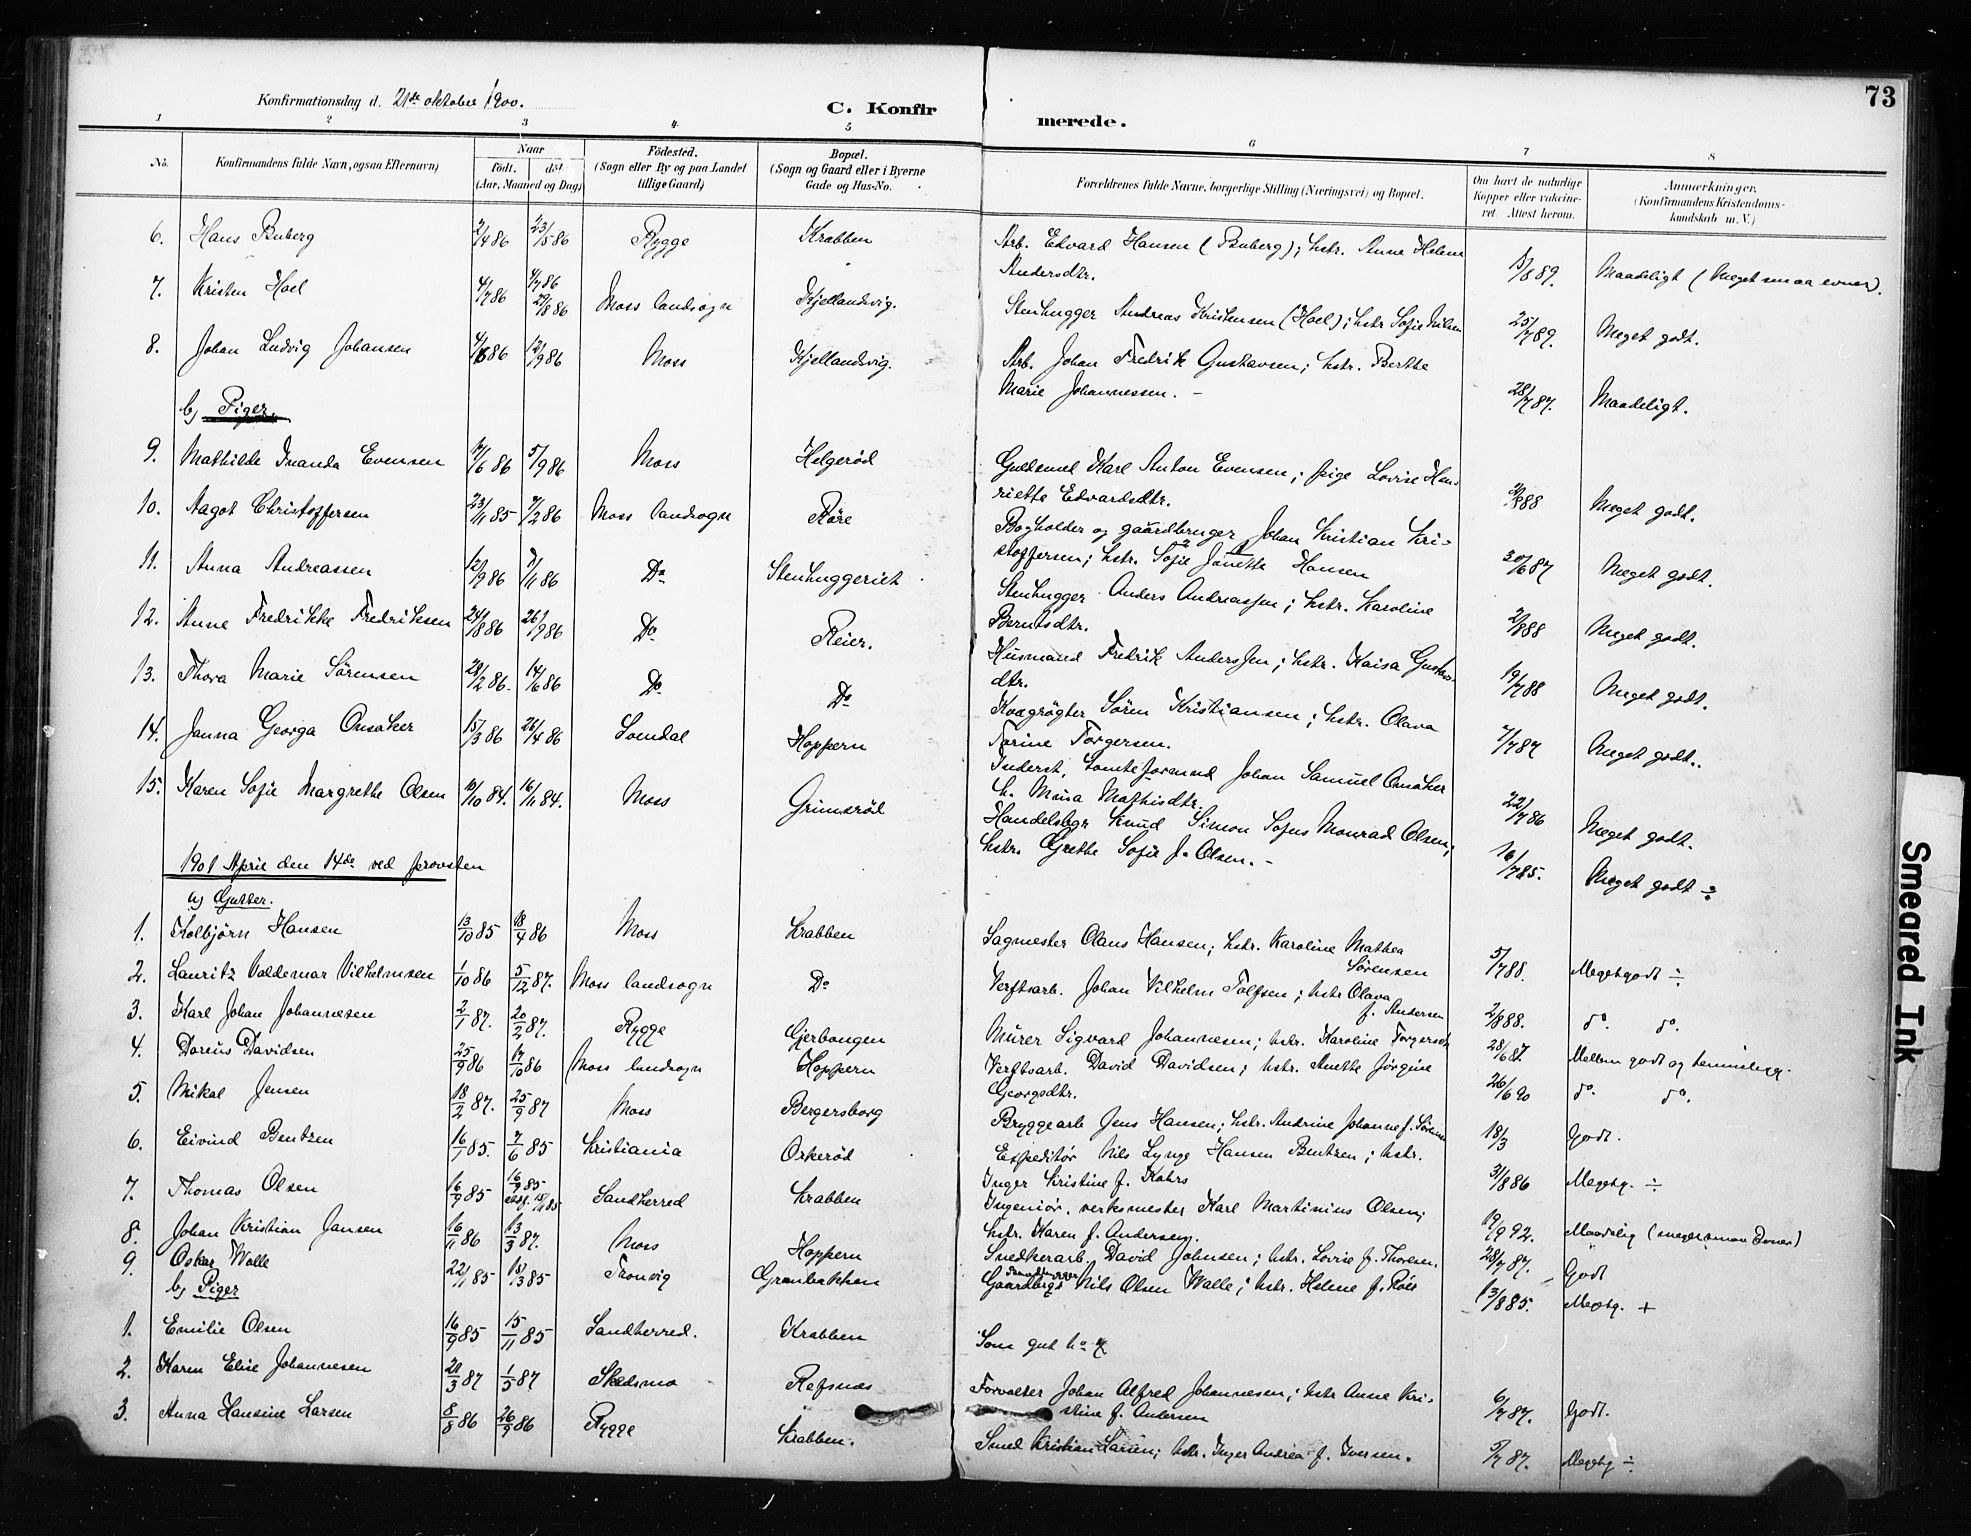 73
Konfirmationsdag d. 21de oktober 1900.
C. Konfir
merede.
1 2 3 4 5 6 7 8
No.
Konfirmandens fulde Navn, ogsaa Efternavn)
Naar
födt. döbt
(Aar, Maaned og Dag)
Födested.
(Sogn eller By og paa Landet
tillige Gaard)
Bopæl.
(Sogn og Gaard eller i Byerne
Gade og Hus-No.
Forældrenes fulde Navne, borgerlige Stilling (Næringsvei) og Bopæl.
Om havt de naturlige
Kopper eller vakcine-
ret. Attest herom.
Anmærkninger.
(Konfirmandens Kristendoms-
kundskab m. V.)
6. Hans Buberg 2/4 86 23/5 86 Rygge Krabben Arb. Edvard Hansen (Buberg); hstr. Anne Helene
Andersdtr. /8 89. Maadeligt (Meget smaa evner).
7. Kristen Hoel 4/7 86 29/8 86 Moss landsogn Kjellandsvig. Stenhugger Andreas Kristensen (Hoel); hstr Sofie Nilsen 25/7 89. Meget godt.
8. Johan Ludvig Johansen 86 12/9 86 Moss Kjellandsvig. Arb. Johan Fredrik Gustavsen; hstr. Berthe
Marie Johannessen. - 28/7 87. Maadeligt.
b) Piger.
9. Mathilde Inanda Evensen 17/6 86 5/9 86 Moss Helgeröd Guldsmed Karl Anton Evensen; pige Lovise Hen-
riette Edvardsdtr. /8 88 Meget godt.
10. Aagot Christoffersen 23/11 85 7/2 86 Moss landsogn Röre Bogholder og gaardbruger Johan Kristian Kri-
stoffersen; hstr. Sofie Janette Hansen 20/6 87 Meget godt.
11. Anna Andreassen 12/9 86 7/11 86 Do Stenhuggeriet Stenhugger Anders Andreassen; hstr. Karoline
Berntsdtr. 2/8 88 Meget godt.
12. Anne Fredrikke Fredriksen 24/8 86 26/9 86 Do Reier. Husmand Fredrik Anderssen; hstr. Kaisa Gustav-
dtr. 19/7 88 Meget godt.
13. Thora Marie Sörensen 28/2 86. 14/6 86 Do Do Kvægrögter Sören Kristiansen; hstr. Olava
Torine Torgersen. /7 87 Meget godt..
14. Janna Georga Onsaker 15/3 86 26/4 86 Svendal Hoppern Inderst, tomteformand Johan Samuel Onsaker
h. Mina Mathisdtr. 22/7 86 Meget godt.
15. Karen Sofie Margrethe Olsen 10/10 84. 16/11 84. Moss Grimsröd Handelsbgr Knud Simon Sofus Monrad Olsen;
hstr. Grethe Sofie f. Olsen. - 16/7 85. Meget godt ÷
1901 April den 14de ved provsten
a) Gutter.
1. Kolbjörn Hansen 13/10 85 18/4 86 Moss Krabben Sagmester Olaus Hansen; hstr. Karoline Mathea
Sörensen 5/7 88. Megetgodt ÷
2. Lauritz Valdemar Vilhelmsen 1/10 86 5/12 87. Moss landsogn Do Verftsarb. Johan Vilhelm Tolfsen; hstr Olava
f. Andersen 2/8 88. do. do.
3. Karl Johan Johannesen 2/1 87. 20/2 87. Rygge Gjerbongen Murer Sigvard Johannesen; hstr. Karoline Torgersdt 28/6 87. Mellem godt og temmeligg.
4. Doreus Davidsen 25/9 86 17/10 86 Moss landsogn Hoppern Verftsarb. David Davidsen; hstr. Anette Jörgine
Georgsdtr. 26/6 90 do. do.
5. Mikal Jensen 18/2 87. 25/9 87 Moss Bergersborg Bryggearb Jens Hansen; hstr. Andrine Johanne f. Sörensen 18/3 Godt.
6. Eivind Bentzen 16/1 85. 7/6 85 Kristiania Orkeröd Expeditör Nils Lynge Hansen Bentzen; hstr.
Inger Kristine f. Kohrs 31/8 86 Megetg. ÷
7. Thomas Olsen 16/9 85 16/9 85 Sandherred Krabben Ingeniör, verksmester Karl Martinius Olsen;
hstr. Karen f. Andersen. 19/9 92. Maadelig (meget smaa Evner)
8. Johan Kristian Jansen 16/11 86 13/3 87. Moss Hoppern Snedkerarb. David Johnsen; hstr. Lovise f. Thoresen. 28/7 87. Godt
9. Oskar Walle 22/1 85 15/3 85 Tronvig Grønbakken Gaardbrgr Nils Olsen Walle; hstr. Helene f. Röis 13/8 85. Megetg. +
b) Piger
1. Emilie Olsen 16/9 85 15/11 85 Sandherred. Krabben Som gut no 7
2. Karen Elise Johannesen 21/3 87 1/5 87 Skedsmo Refsnæs Forvalter Johan Alfred Johannesen; hstr Anne Kri-
stine f. Andersen 6/7 87. Godt.
3. Anna Hansine Larsen 8/8 86 26/9 86 Rygge Krabben. Smed Kristian Larsen; hstr. Inger Andrea f. Iversen. 5/7 87. Megetg ÷
Smeared Ink